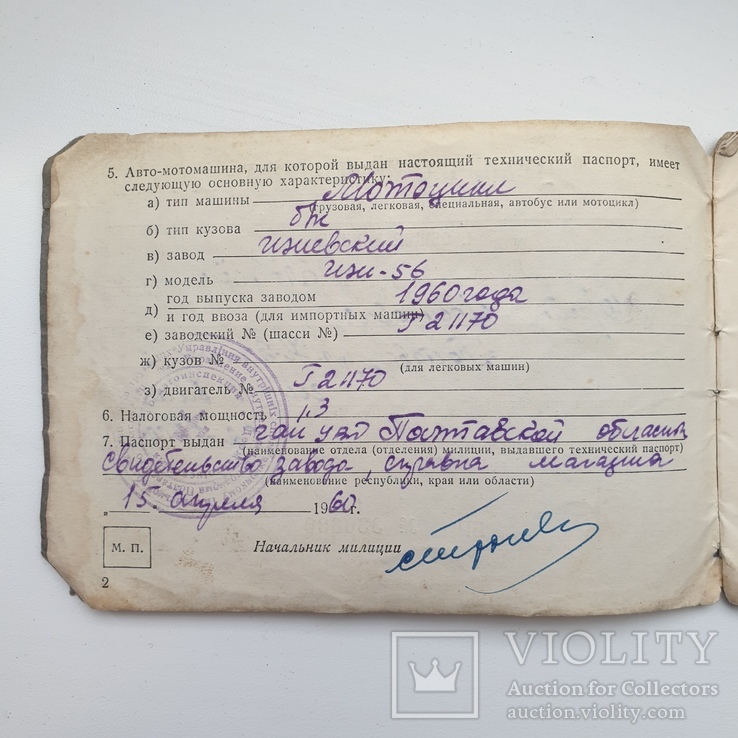 5. Авто-мотомашина, для которой выдан настоящий технический паспорт, имеет
следующую основную характеристику:
а) тип машины Мотоцикл
(грузовая, легковая, специальная, автобус или мотоцикл)
б) тип кузова б/к
в) завод ижевский
г) модель иж-56
год выпуска заводом 1960 года
д)
и год ввоза (для импортных машин)
е) заводский № (шасси №) Г 21170
ж) кузов №
(для легковых машин)
з) двигатель № Г 21170
6. Налоговая мощность
7. Паспорт выдан гаи увд Полтавской области
(наименование отдела (отделения) милиции, выдавшего технический паспорт)
Свидетельство завода, справка магазина
(наименование республики, края или области)
„15 апреля 1960 г.
М. П.
Начальник милиции
2
VIOLITY
Auction for Collectors
auction.violity.com